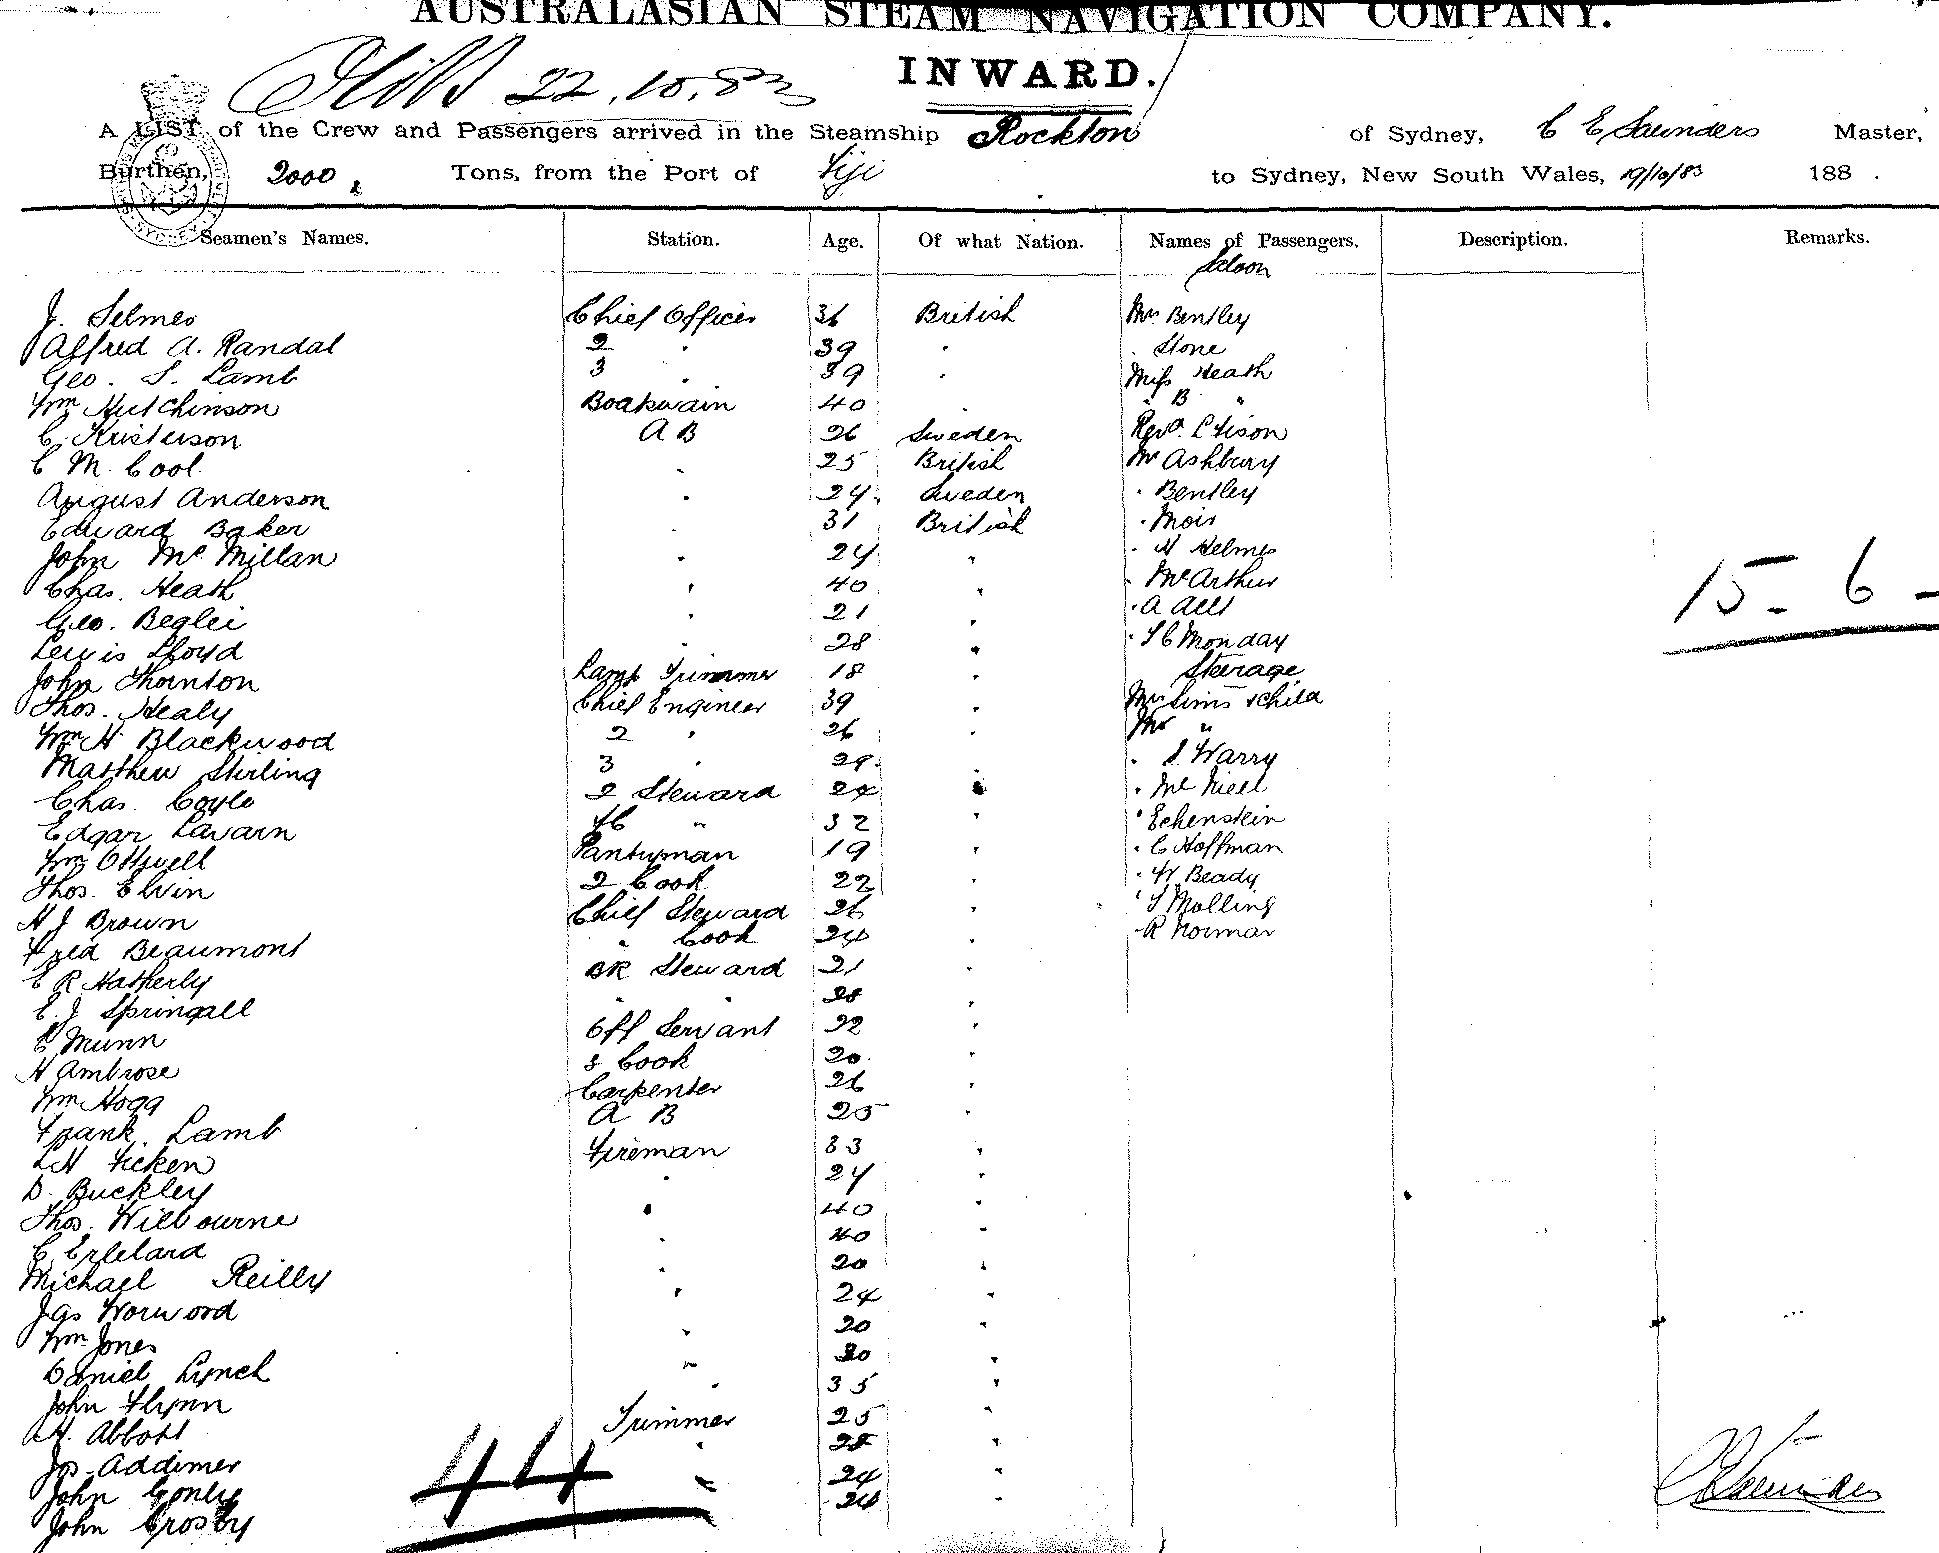 AUSTRALASIAN STEAM NAVIGATION COMPANY.
22.10.83
INWARD.
A LIST of the Crew and Passengers arrived in the Steamship Rockton of Sydney, C E Saunders Master,
Burthen, 2000 Tons, from the Port of Fiji to Sydney, New South Wales, 19/10/83 188 .
Seamen's Names. Station. Age. Of what Nation. Names of Passengers. Description. Remarks.
Saloon
J. Selmes Chief Officer 36 British Mrs Bentley
Alfred A. Randal 2 " 39 " Stone
Geo. S. Lamb 3 " 39 " Miss Heath
Wm Hutchinson Boatswain 40 " " B "
C. Kristerson A B 26 Sweden Revd. L Fison
C M. Cool " 25 British Mr Ashbury
August Anderson " 24 Sweden " Bentley
Edward Baker 31 British " Moir
John McMillan " 24 " " H Selmes
Chas. Heath " 40 " " McArthur
Geo. Beglei " 21 " " A
Lewis Lloyd " 28 " " Monday
John Thornton Lamp Trimmer 18 " Steerage
Thos. Healy Chief Engineer 39 " Mrs Sims & child
Wm H. Blackwood 2 " 26 " Mr "
Matthew Stirling 3 " 29 " S Warry
Chas. Coyle 2 Steward 24 " " McNiell
Edgar Lavarn " 32 " " Echenstein
Wm Ottwell Pantryman 19 " " C Hoffman
Thos. Elvin 2 Cook 22 " " W Beady
H J Brown Chief Steward 26 " " Malling
Fred Beaumont " Cook 24 " " R Norman
E R Hatherly BR Steward 21 "
E. J Springall " " 28 "
C Munn Off Servant 22 "
H Ambrose 3 Cook 20 "
Wm Hogg Carpenter 26 "
Frank. Lamb A B 25 "
L H Ficken Fireman 33 "
D. Buckley " 24 "
Thos. Wilbourne " 40 "
C " 40 "
Michael Reilly " 20 "
Jas Worwood " 24 "
Wm Jones " 20 "
Daniel Lynch " 30 "
John Flynn " 35 "
A H. Abbott Trimmer 25 "
Jos. Addimer " 28 "
John Conley " 24 "
John Crosby 24 "
15 - 6 -
44
C E Saunders